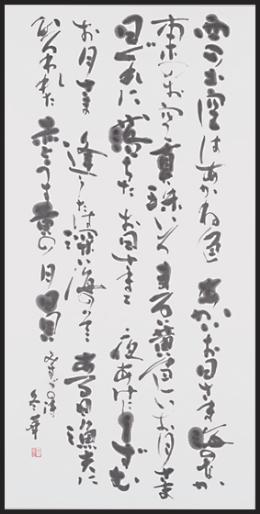 西のお空はあかね色 あかいお日さま海のなか
東のお空真珠いろ まるい黄色いお月さま
日ぐれに落ちたお日さまと 夜あけにしずむ
お月さま 逢うたは深い海のそこ ある日漁夫に
ひろわれた 赤とうす黄の月日貝 みすゞの詩